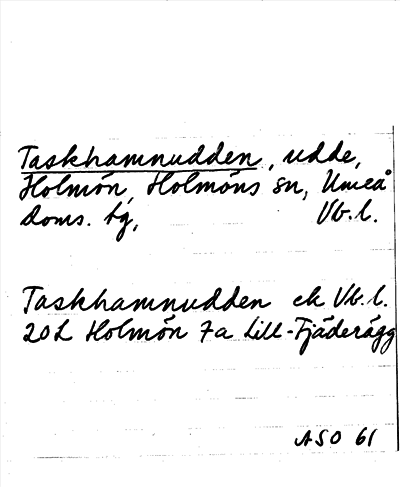 Taskhamnudden, udde,
Holmön, Holmöns sn, Umeå
doms. tg, Vb.l.
Taskhamnudden ek Vb.l.
20L Holmön 7a Lill-Fjäderägg
ASO 61